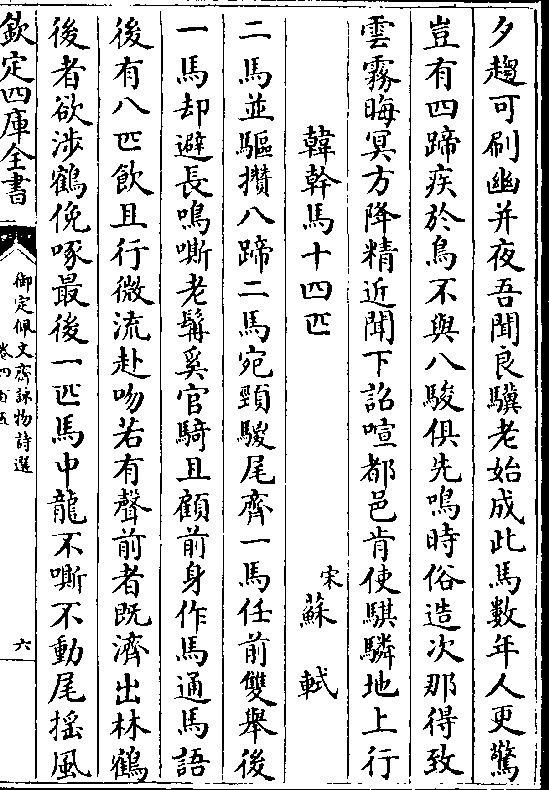 夕趨可刷幽并夜吾聞良驥老始成此馬數年人更驚
豈有四蹄疾於鳥不與八駿俱先鳴時俗造次那得致
雲霧晦冥方降精近聞下詔喧都邑肯使騏驎地上行
韓幹馬十四匹
宋蘇軾
二馬並驅攢八蹄二馬宛頸騣尾齊一馬任前雙舉後
一馬却避長鳴嘶老髯奚官騎且顧前身作馬通馬語
後有八匹飲且行微流赴吻若有聲前者既濟出林鶴
後者欲涉鶴俛啄最後一匹馬中龍不嘶不動尾搖風
欽定四庫全書
御定佩文齋詠物詩選
卷四百五
六